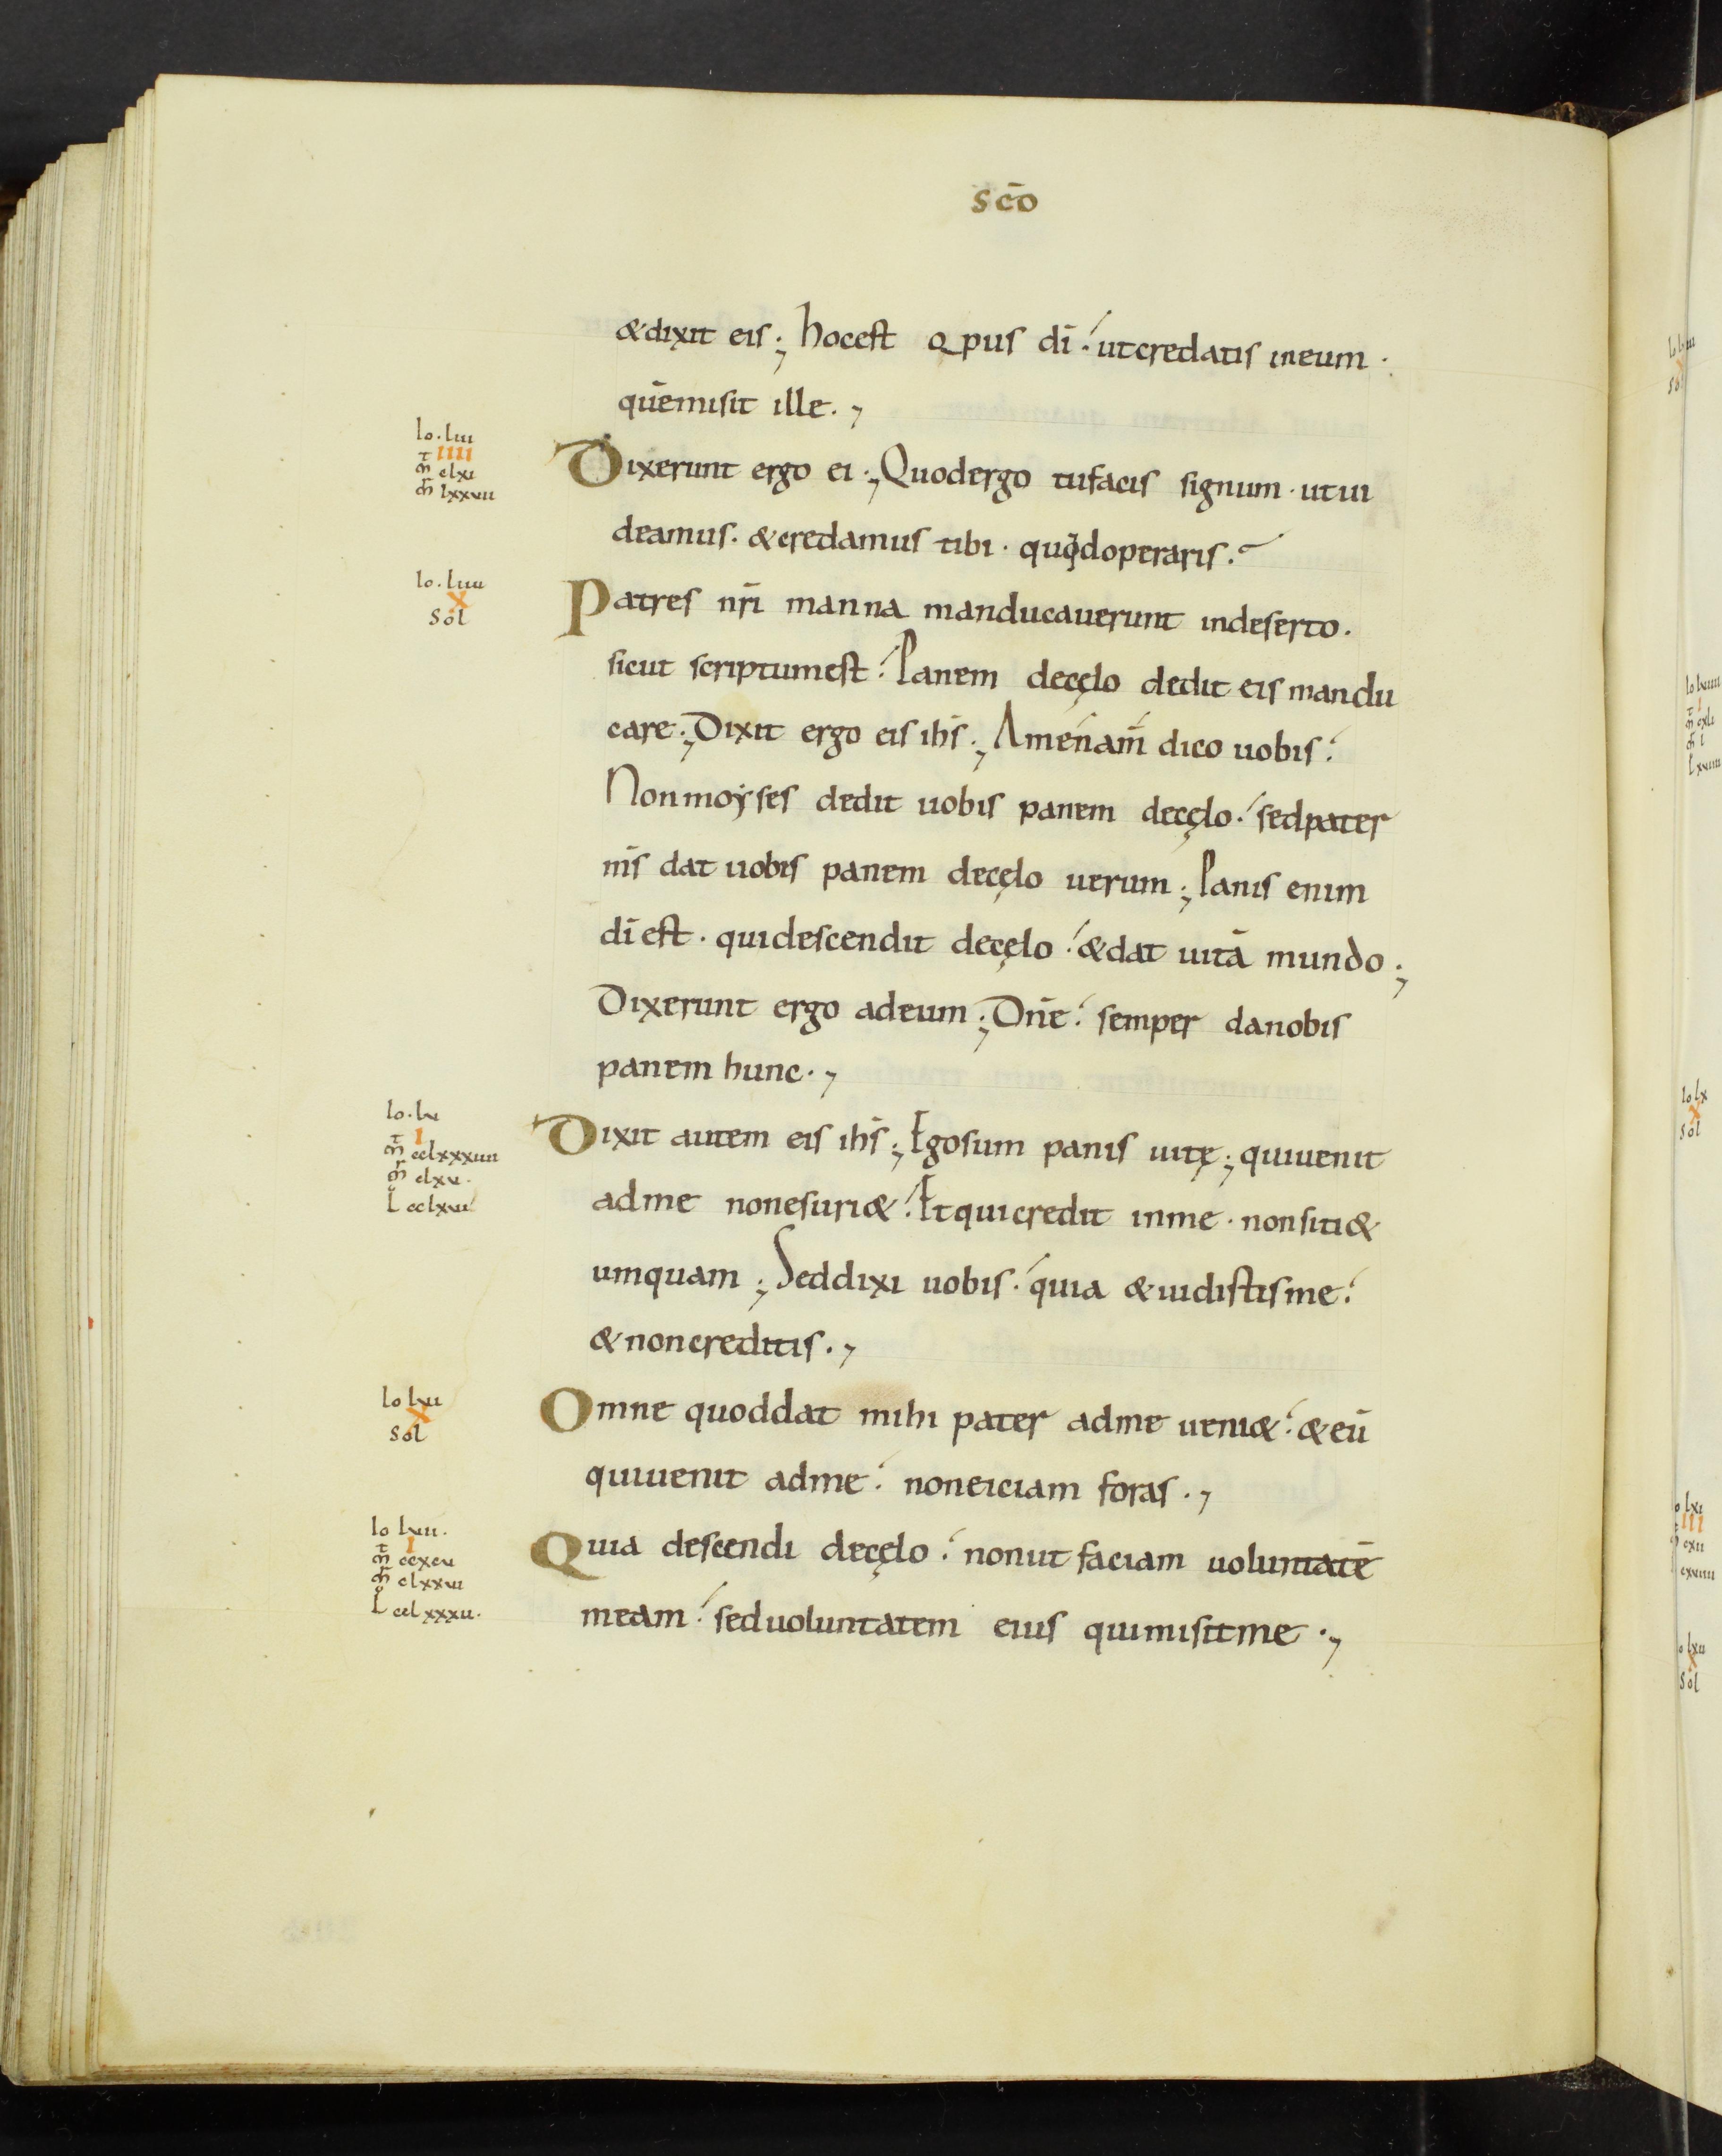 scō
&dixit eis; hocest opus dī. utcredatis ineum.
quēmisit ille.,
Io. liii
T IIII
m̄ clxi
m̄r lxxvii
Dixerunt ergo ei; Quodergo tufacis signum. utui
deamus. &credamus tibi. quọdoperaris.
Io. liiii
X
Sol
Patres nr̄i manna manducauerunt indeserto.
sicut scriptumest. Panem decęlo dedit eis mandu
care; Dixit ergo eis ihs̄; Amenam̄ dico uobis.
Nonmoẏses dedit uobis panem decęlo. sedpater
m̄s dat uobis panem decęlo uerum; Panis enim
dī est. quidescendit decęlo. &dat uitā mundo;
Dixerunt ergo adeum; Dn̄e. semper danobis
panem hunc.,
Io. lv
T I
m̄ cclxxxiiii
m̄r clxv.
L cclxvi
Dixit autem eis ihs̄; Egosum panis uitę; quiuenit
adme nonesuri&. Etquicredit inme. nonsiti&
umquam; Seddixi uobis. quia &uidistisme.
&noncreditis.,
Io lvi
X
Sol
Omne quoddat mihi pater adme ueni&. &eū
quiuenit adme. noneiciam foras.,
Io lvii.
T I
m̄ ccxcv
m̄r clxxvi
L cclxxxii.
Quia descendi decęlo. nonut faciam uoluntatē
meam. seduoluntatem eius quimisitme.,